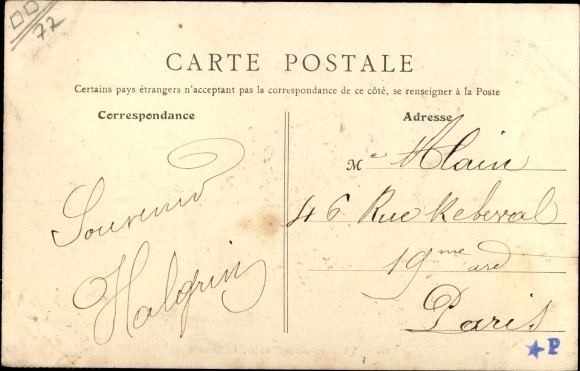 77
CARTE POSTALE
Certains pays étrangers n'acceptant pas la correspondance de ce côté, se renseigner à la Poste
Correspondance
Souvenir
Halgrin
Adresse
Me Alain
46 Rue Rebeval
19me ard
Paris
P